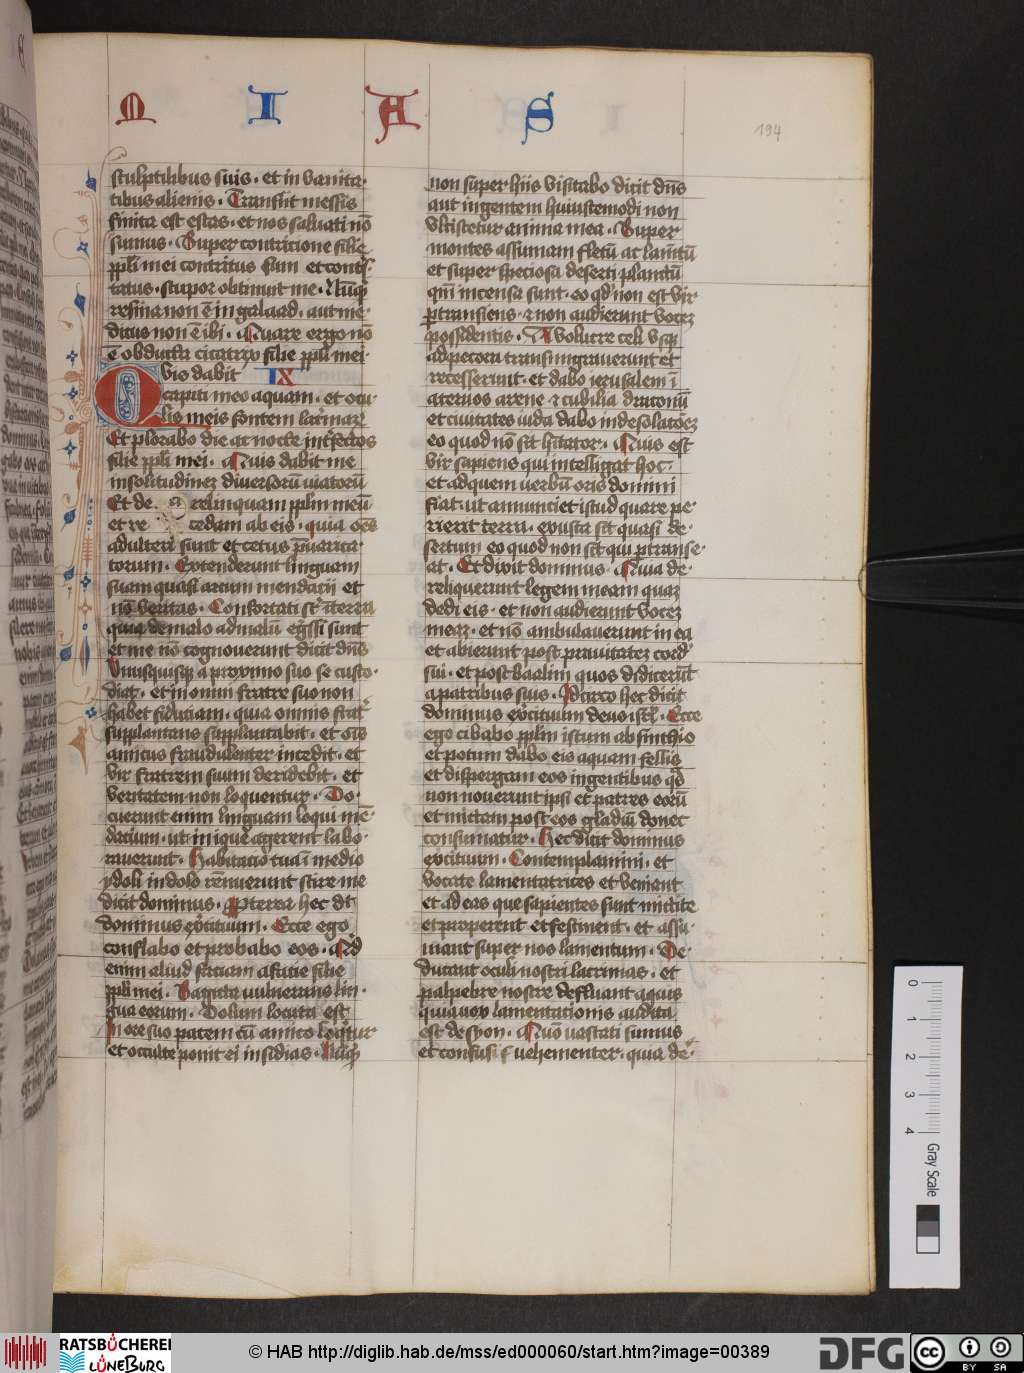 M I A S
194
sculptilibus suis · et in vanita·
tibus alienis · Transiit messis
finita est estas · et nos saluati nō
sumus · Super contricione filie
ppli mei contritus sum et cont͛s·
tatus · stupor obtinuit me · Nūq̄
resina non ē in galaad · aut me·
dicus non ē ibi · Quare ergo nō
ē obducta cicatrix filie ppli mei ·
Quis dabit IX
capiti meo aquam · et ocu·
lis meis fontem lac̄mar̄
Et plorabo die ac nocte int̄fectos
filie ppli mei · Quis dabit me
in solitudinez diuersorū uiatorū
Et de relinquam pplm meū·
et re cedam ab eis · quia oēs
adulteri sunt et cetus p̄uarica·
torum · Extenderunt linguam
suam quasi arcum mendacij et
nō veritas · Confortati st̄ ī terra
quia de malo ad malū eg̃ssi sunt
et me nō cognouerunt dicit dn̄s
Vnusquisq̧ a proximo suo se custo·
diat · et in omni fratre suo non
habet fiduciam · quia omnis frat̄
supplantans supplantabit · et oīs
amicus fraudulenter incedit · et
vir fratrem suum deridebit · et
veritatem non loquentur · Do·
cuerunt enim linguam loqui mē·
dacium · ut inique agerent labo·
rauerunt · Habitacio tua ī medio
ydoli in dolo rēnuerunt scire me
dicit dominus · Pterea hec dt̄
dominus exc̄ituum · Ecce ego
conflabo et probabo eos · Qd
enim aliud faciam a facie filie
ppli mei · Sagitta uulnerans lin·
gua eorum · Dolum locuta est
In ore suo pacem cū amico loq̄tur
et occulte ponit ei insidias · Nūq̄
non super hiis visitabo dicit dn̄s
aut in gentem huiuscemodi non
vlciscetur anima mea · Super
montes assumam fletū ac lam̄tū
et super speciosa deserti planctū
qm̄ incensa sunt · eo qd non est vir
p̄transiens · & non audierunt vocez
possidentis · A volucre celi vsq̧
ad pecora transmigrauerunt et
recesserunt · et dabo ierusalem ī
aceruos arene & cubilia draconū
et ciuitates iuda dabo in desolatōez
eo quod nō sit hītator · Quis est
vir sapiens qui intelligat hoc ·
et ad quem uerbū oris domini
fiat · ut annunciet istud quare pe·
rierit terra · exusta sit quasi de·
sertum eo quod non sit qui p̄transe·
at · Et dixit dominus · Quia de·
reliquerunt legem meam quaz
dedi eis · et non audierunt vocez
meaz · et nō ambulauerunt in ea
et abierunt post prauitatez cord̕
sui · et post baalim quos didicerūt
a patribus suis · Idcirco hec dicit
dominus exc̄ituum deus isrl̄ · Ecce
ego cibabo pplm istum absinthio
et potum dabo eis aquam fellis
et dispergam eos in gentibus q̄s
non nouerunt ipsi et patres eorū
et mittam post eos gladiū donec
consumatur · Hec dicit dominus
exc̄ituum · Contemplamini · et
vocate lamentatrices et veniant
et ad eas que sapientes sunt mittite
et properent et festinent · et assu·
mant super nos lamentum · De·
ducant oculi nostri lacrimas · et
palpebre nostre defluant aquis
quia vox lamentationis audita
est de syon · Quō uastati sumus
et confusi s uehementer · quia de·
0 1 2 3 4
Gray Scale
RATSBÜCHEREI
LÜNEBURG
© HAB http://diglib.hab.de/mss/ed000060/start.htm?image=00389
DFG
cc BY SA